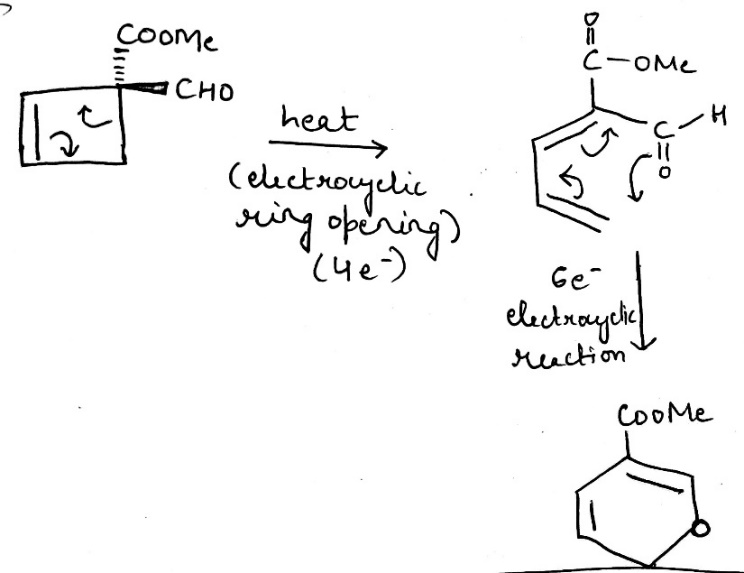 COOMe
CHO
heat
(electrocyclic
ring opening)
(4e⁻)
O
C-OMe
C-H
O
6e⁻
electrocyclic
reaction
COOMe
O